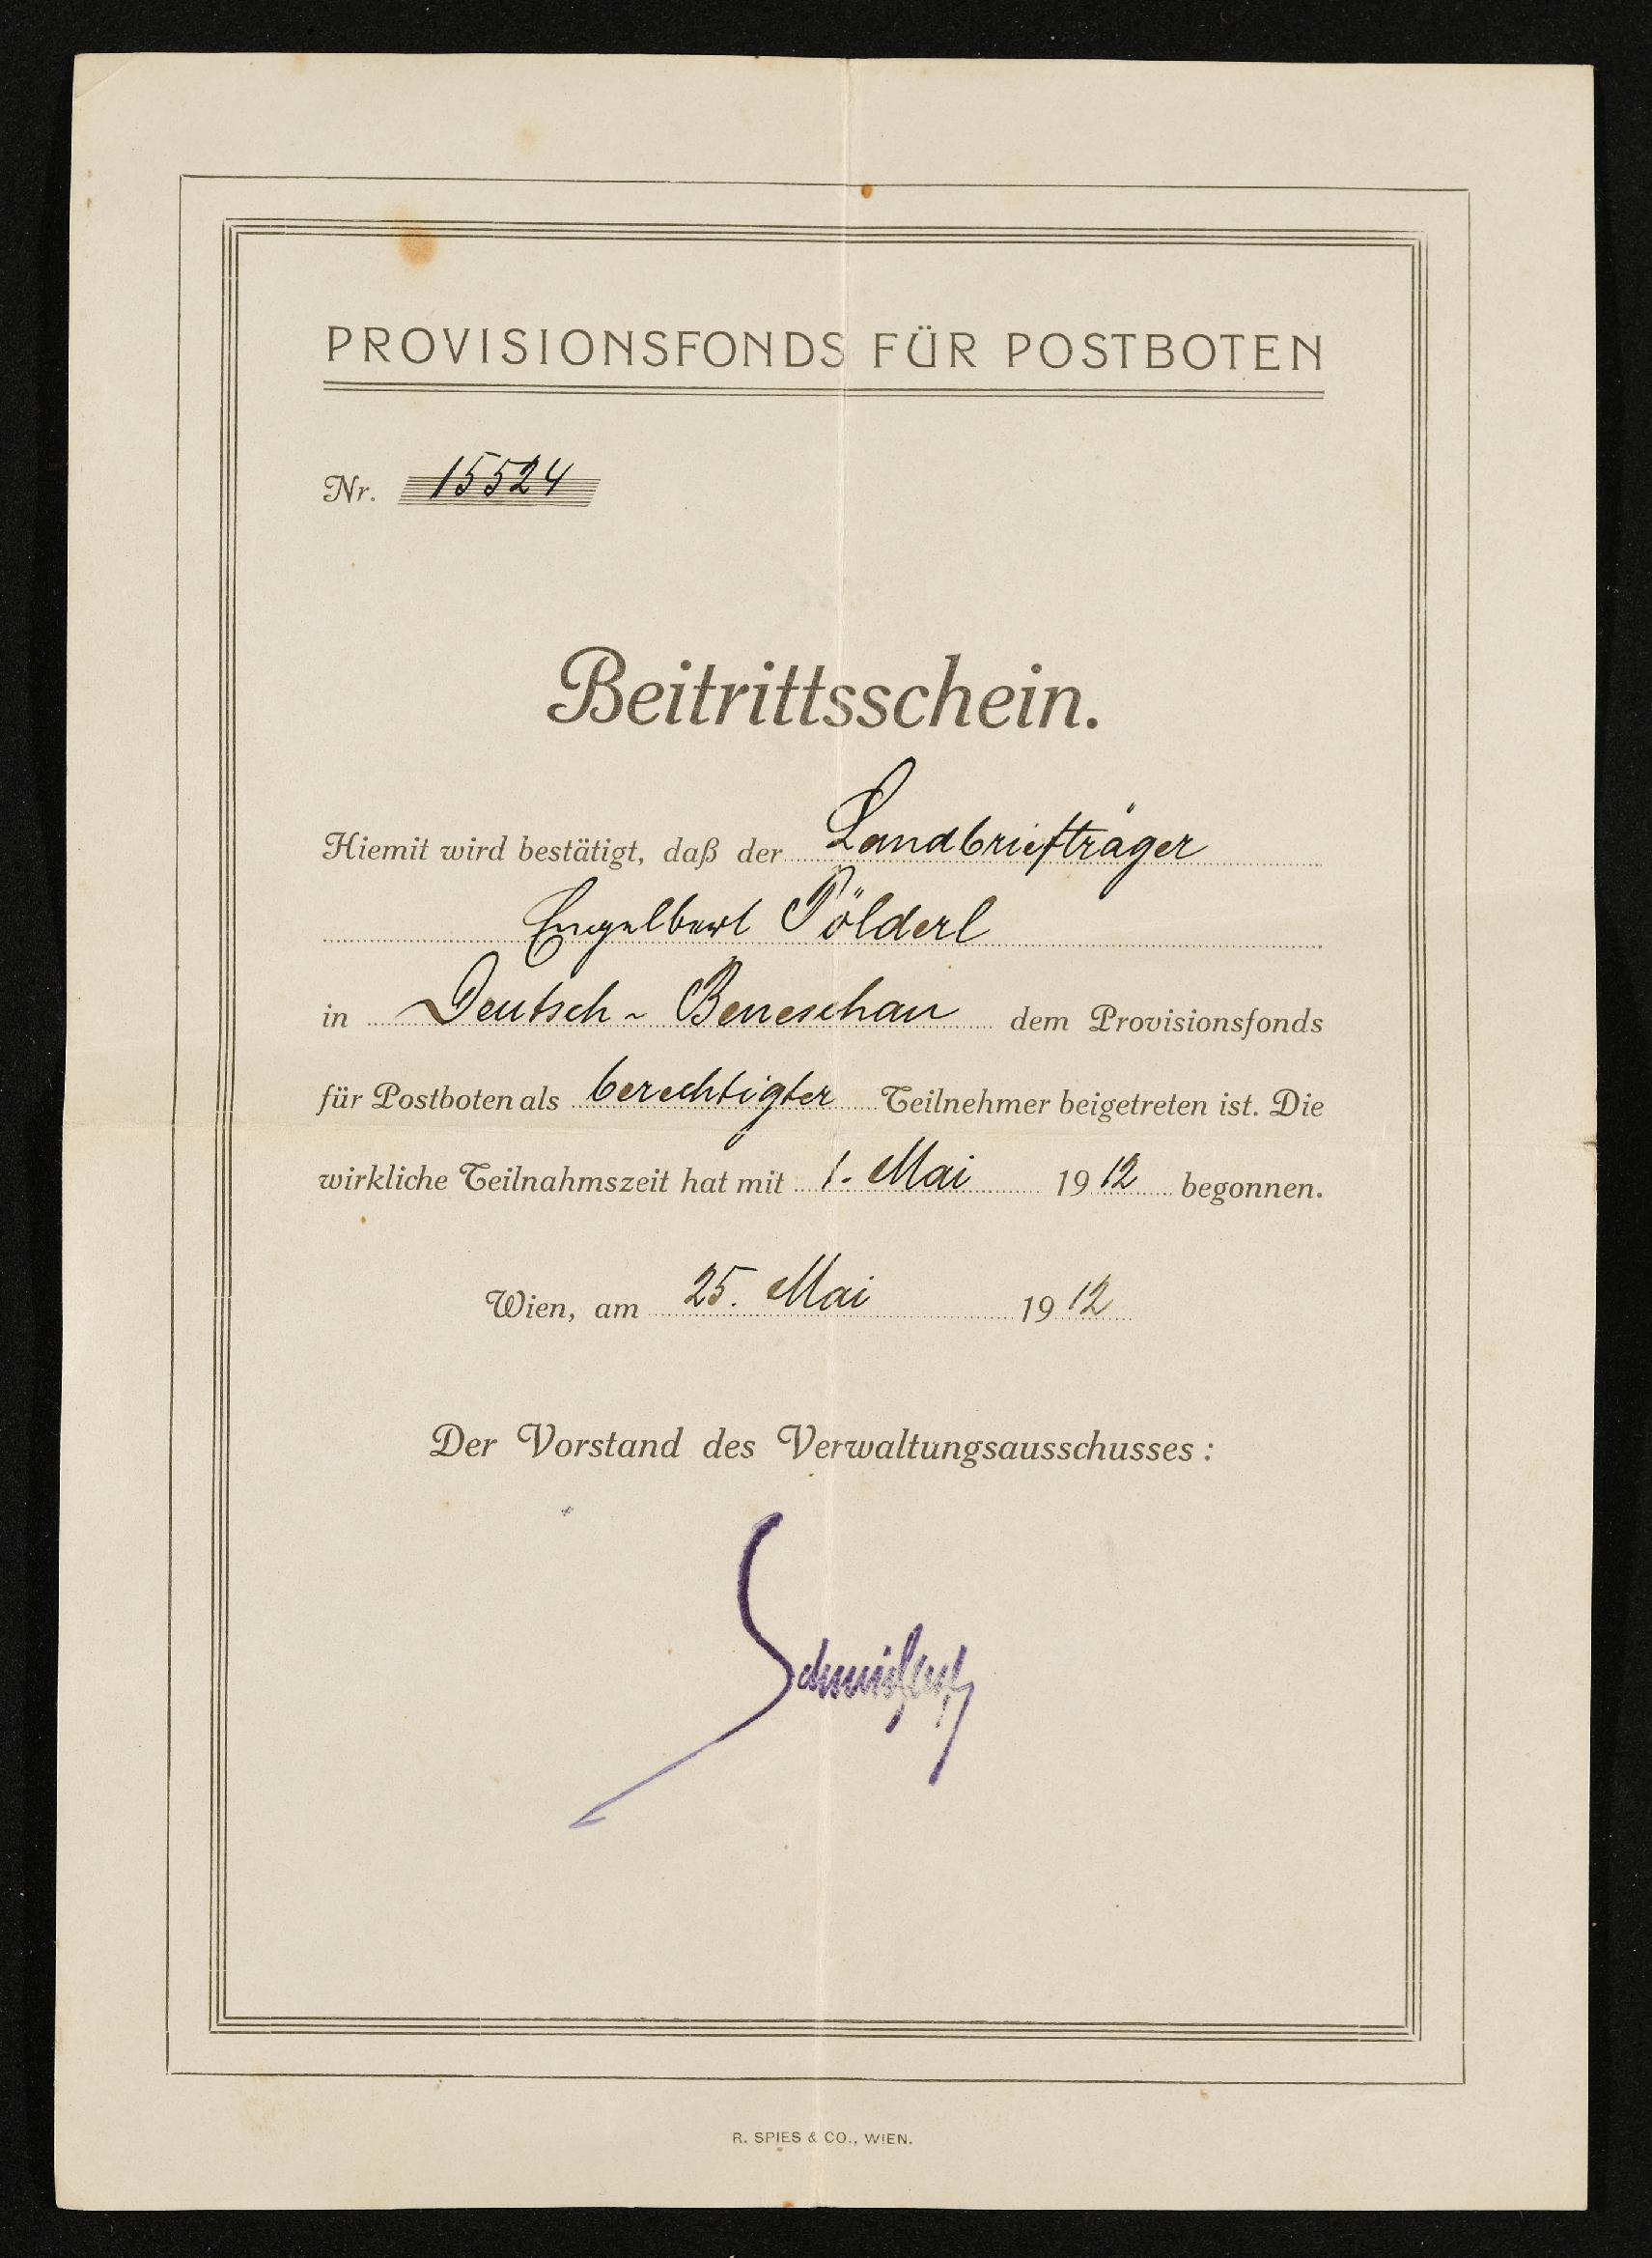 PROVISIONSFONDS FÜR POSTBOTEN
Nr. 15524
Beitrittsschein.
Hiemit wird bestätigt, daß der Landbriefträger
Engelbert Pölderl
in Deutsch-Beneschau dem Provisionsfonds
für Postboten als berechtigter Teilnehmer beigetreten ist. Die
wirkliche Teilnahmszeit hat mit 1. Mai 1912 begonnen.
Wien, am 25. Mai 1912
Der Vorstand des Verwaltungsausschusses:
R. SPIES & CO., WIEN.